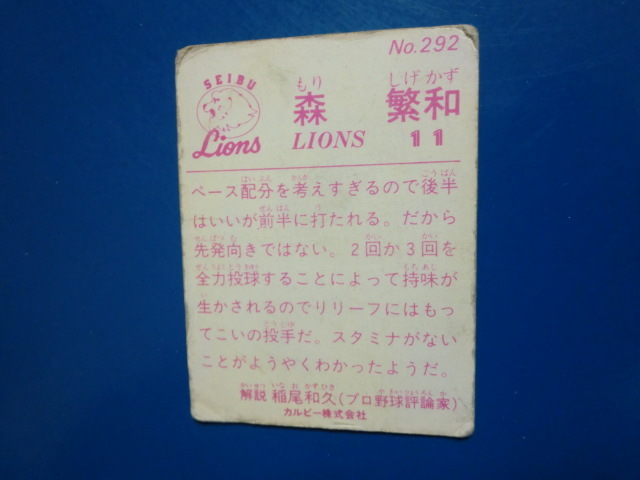 No.292
SEIBU
Lions
もり しげ かず
森 繁和
LIONS 11
ペース配分を考えすぎるので後半
はいいが前半に打たれる。だから
先発向きではない。2回か3回を
全力投球することによって持味が
生かされるのでリリーフにはもっ
てこいの投手だ。スタミナがない
ことがようやくわかったようだ。
解説 稲尾和久(プロ野球評論家)
カルビー株式会社